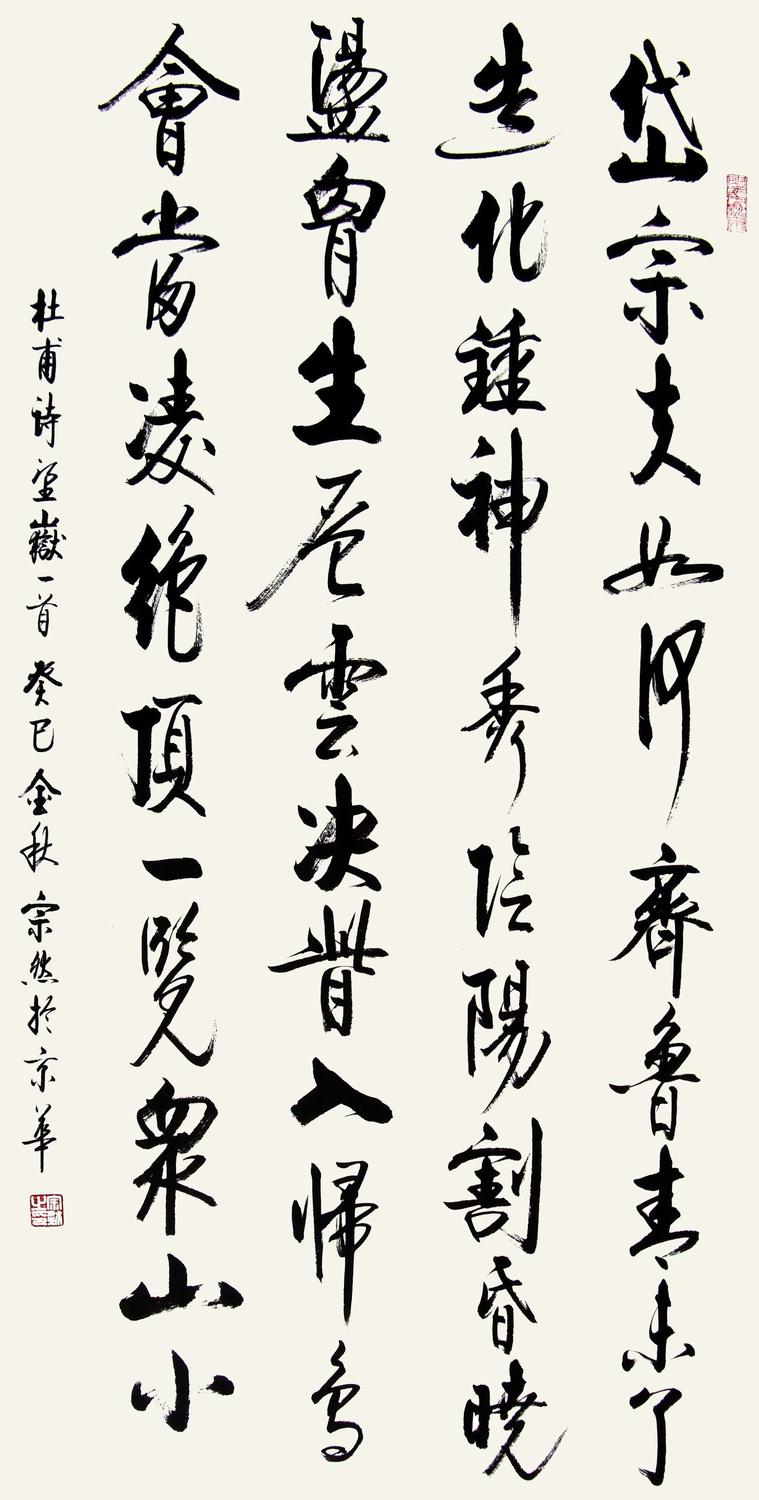 岱宗夫如何齊魯青未了
造化鍾神秀陰陽割昏曉
盪胷生層雲决眥入帰鳥
會當凌絕頂一覽衆山小
杜甫詩望嶽一首癸巳金秋宗然於京華